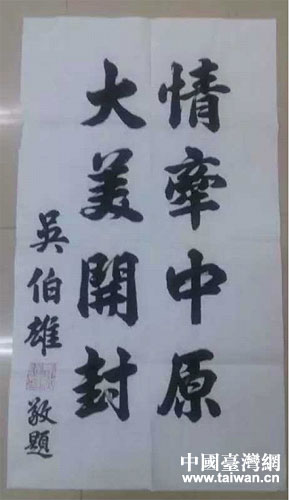 情牽中原
大美開封
吳伯雄
敬題
中國臺灣網
www.taiwan.cn